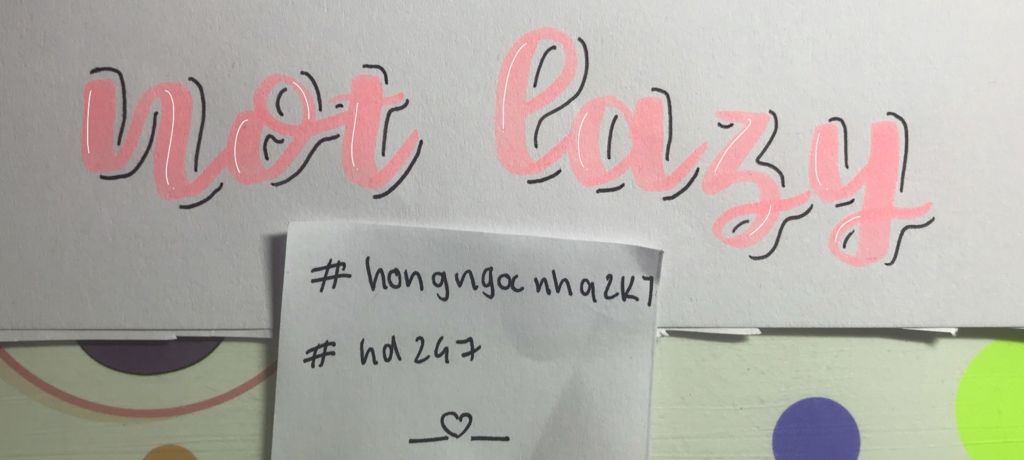 not lazy
# hongngocnha2K7
# hd247